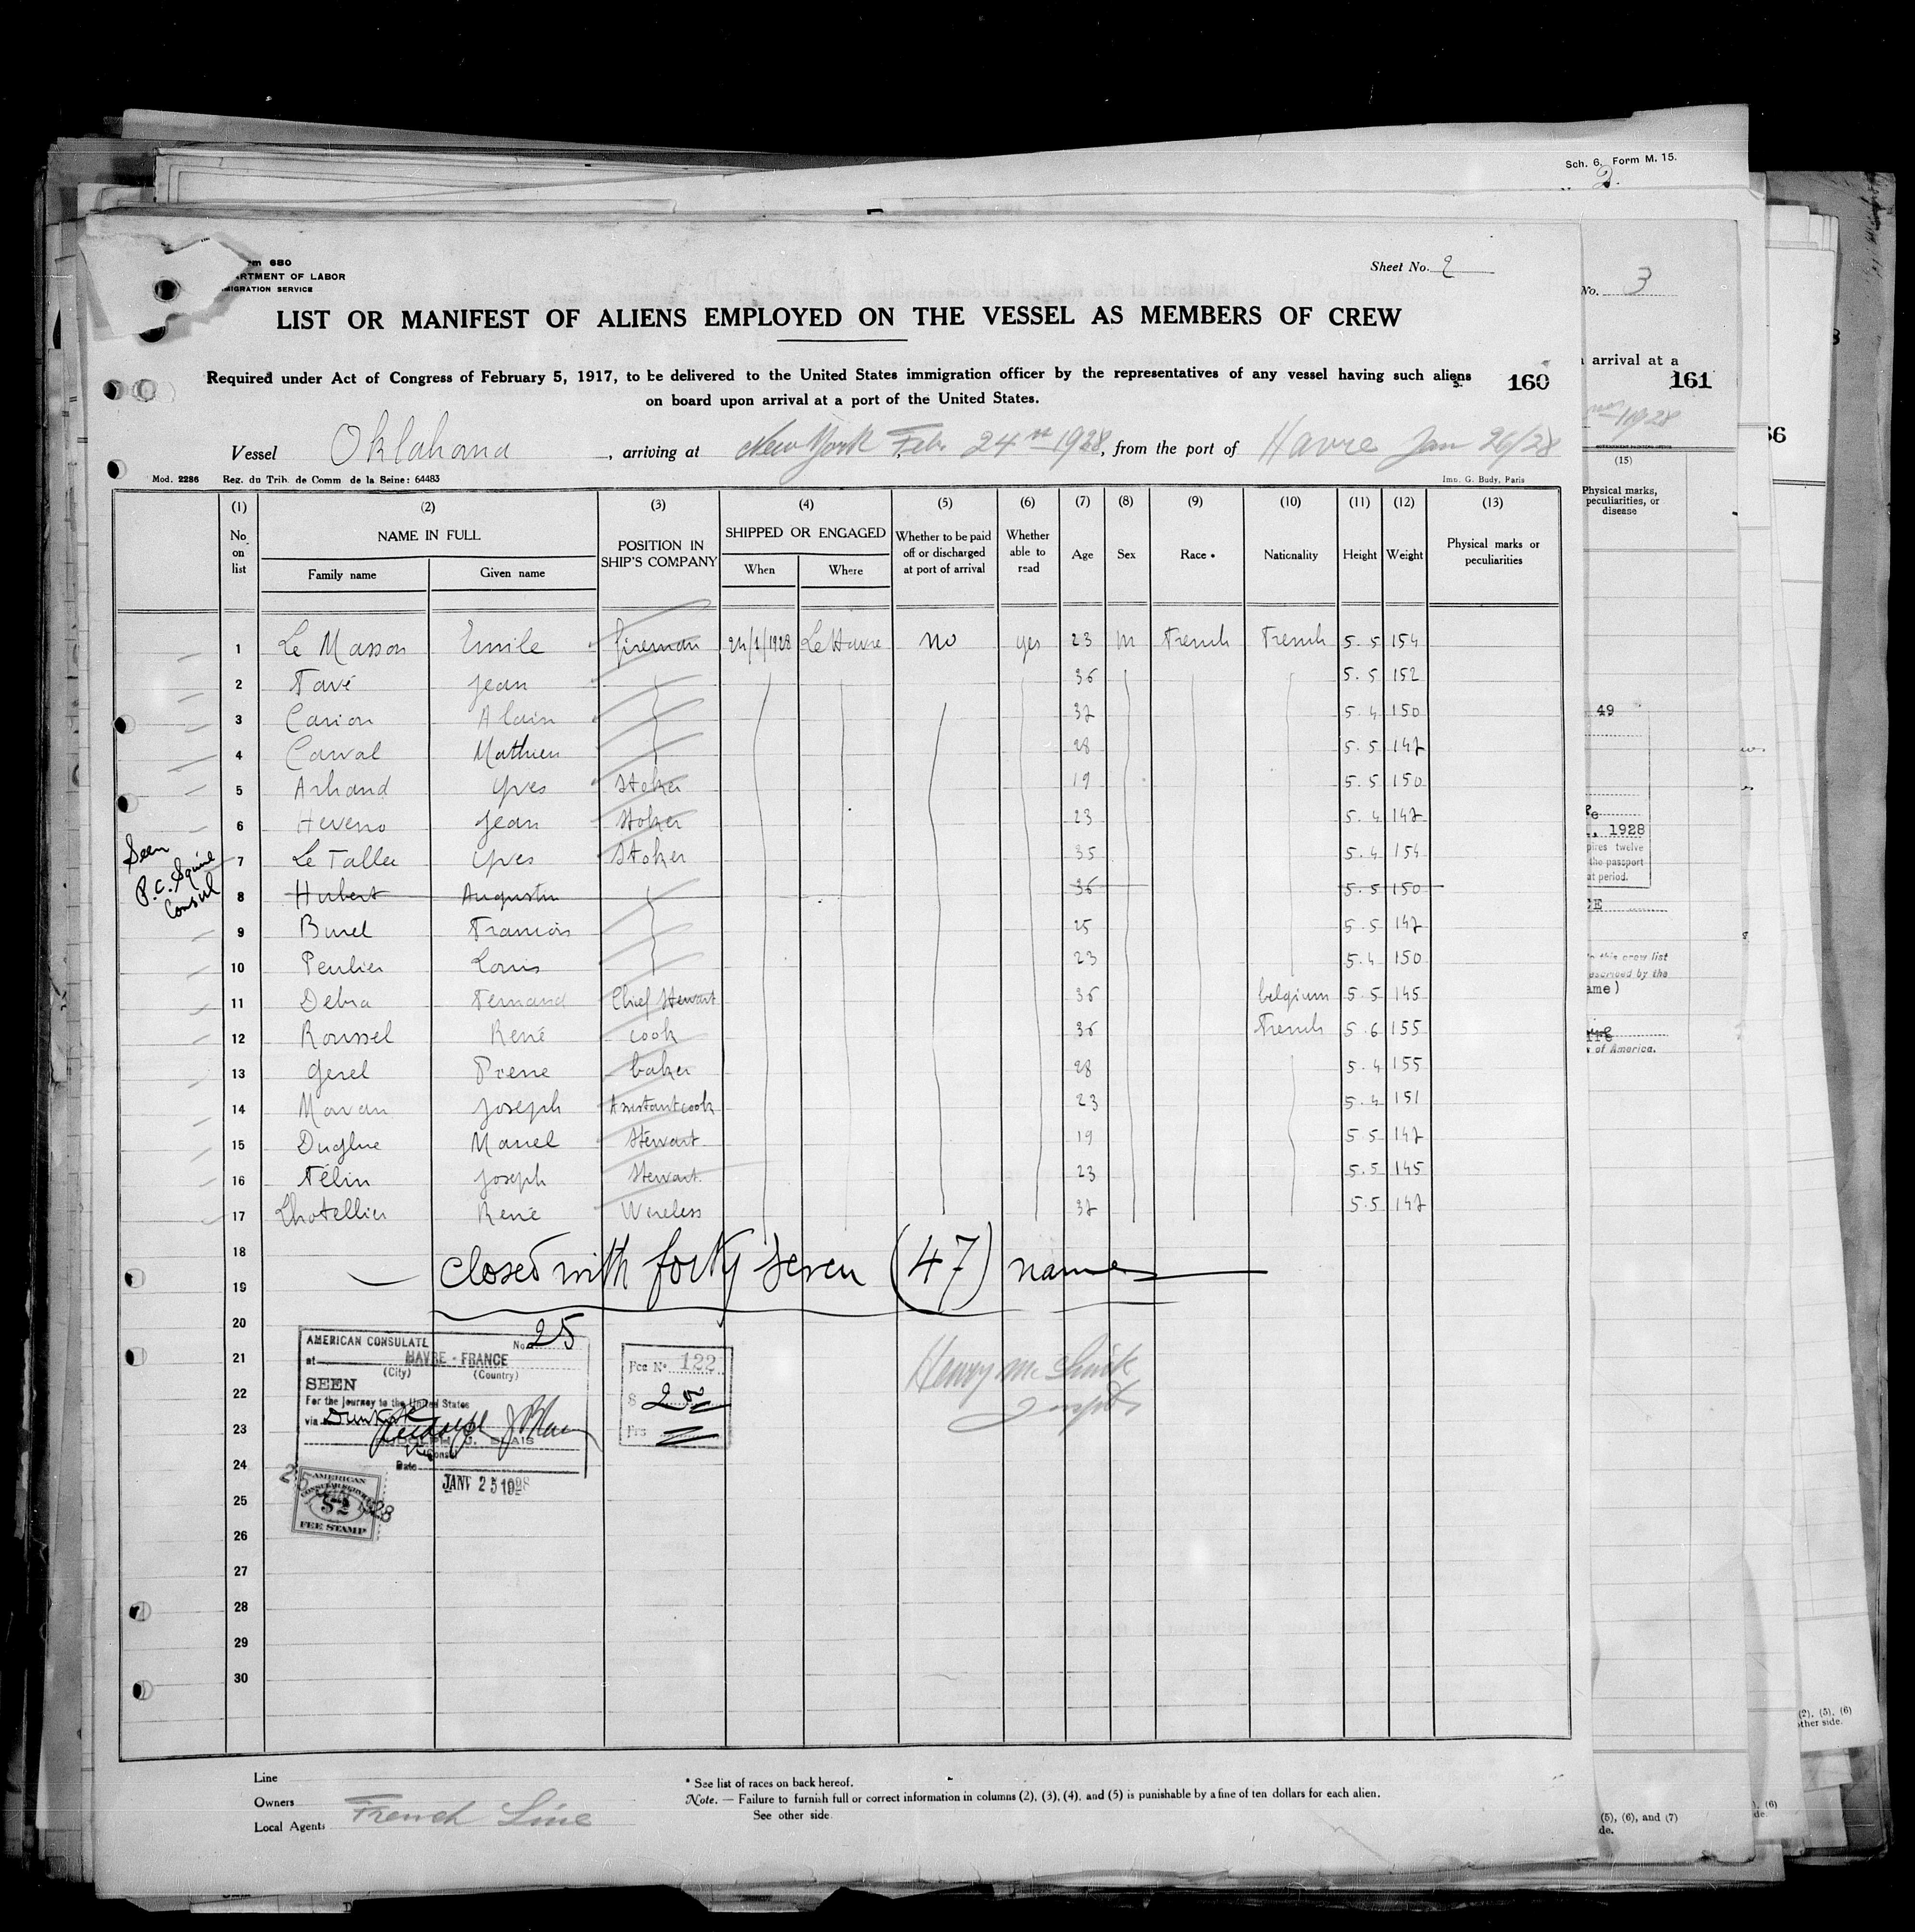 Sch. 6. Form M. 15.
2.
rm 680
ARTMENT OF LABOR
MIGRATION SERVICE
Sheet No. 2
No. 3
LIST OR MANIFEST OF ALIENS EMPLOYED ON THE VESSEL AS MEMBERS OF CREW
Required under Act of Congress of February 5, 1917, to be delivered to the United States immigration officer by the representatives of any vessel having such aliens
on board upon arrival at a port of the United States.
160
arrival at a
161
Vessel Oklahama, arriving at New York, Feb. 24th 1928, from the port of Havre Jan 26/28
Mod. 2286 Reg. du Trib. de Comm de la Seine: 64483 Imp. G. Budy, Paris
(1) (2) (3) (4) (5) (6) (7) (8) (9) (10) (11) (12) (13)
No. on list NAME IN FULL Family name Given name POSITION IN SHIP'S COMPANY SHIPPED OR ENGAGED When Where Whether to be paid off or discharged at port of arrival Whether able to read Age Sex Race * Nationality Height Weight Physical marks or peculiarities
(15)
Physical marks, peculiarities, or disease
1 Le Masson Emile fireman 24/1/1928 Le Havre no yes 23 m French French 5.5 154
2 Favé Jean 36 5.5 152
3 Carion Alain 37 5.4 150
4 Carval Mathieu 28 5.5 147
5 Arhand Yves Stoker 19 5.5 150
6 Heveno Jean Stoker 23 5.4 147
7 Le Tallec Yves Stoker 35 5.4 154
Seen
P.C. Squire
Consul
8 Hubert Augustin 36 5.5 150
9 Burel Francois 25 5.5 147
10 Peulier Louis 23 5.4 150
11 Debra Fernand Chief Stewart 36 belgium 5.5 145
12 Roussel René cook 36 French 5.6 155
13 Gerel Pierre baker 28 5.4 155
14 Mavan Joseph Assistant cook 23 5.4 151
15 Duglue Marcel Stewart 19 5.5 147
16 Félin Joseph Stewart 23 5.5 145
17 Lhotellier René Wireless 37 5.5 147
18
closed with forty seven (47) names
19
20
21
22
23
24
25
26
27
28
29
30
AMERICAN CONSULATE No. 25
at HAVRE - FRANCE
(City) (Country)
SEEN
For the journey to the United States
via Dunkirk
Date JANV 25 1928
AMERICAN
CONSULAR SERVICE
$2
FEE STAMP
Fee No. 122
$ 2.50
Frs
Henry Mc
49
1928
pires twelve
the passport
at period.
this crew list
ame)
s of America.
Line
Owners
Local Agents
French Line
* See list of races on back hereof.
Note. — Failure to furnish full or correct information in columns (2), (3), (4), and (5) is punishable by a fine of ten dollars for each alien.
See other side.
(5), (6), and (7)
de.
(2), (5), (6)
other side.